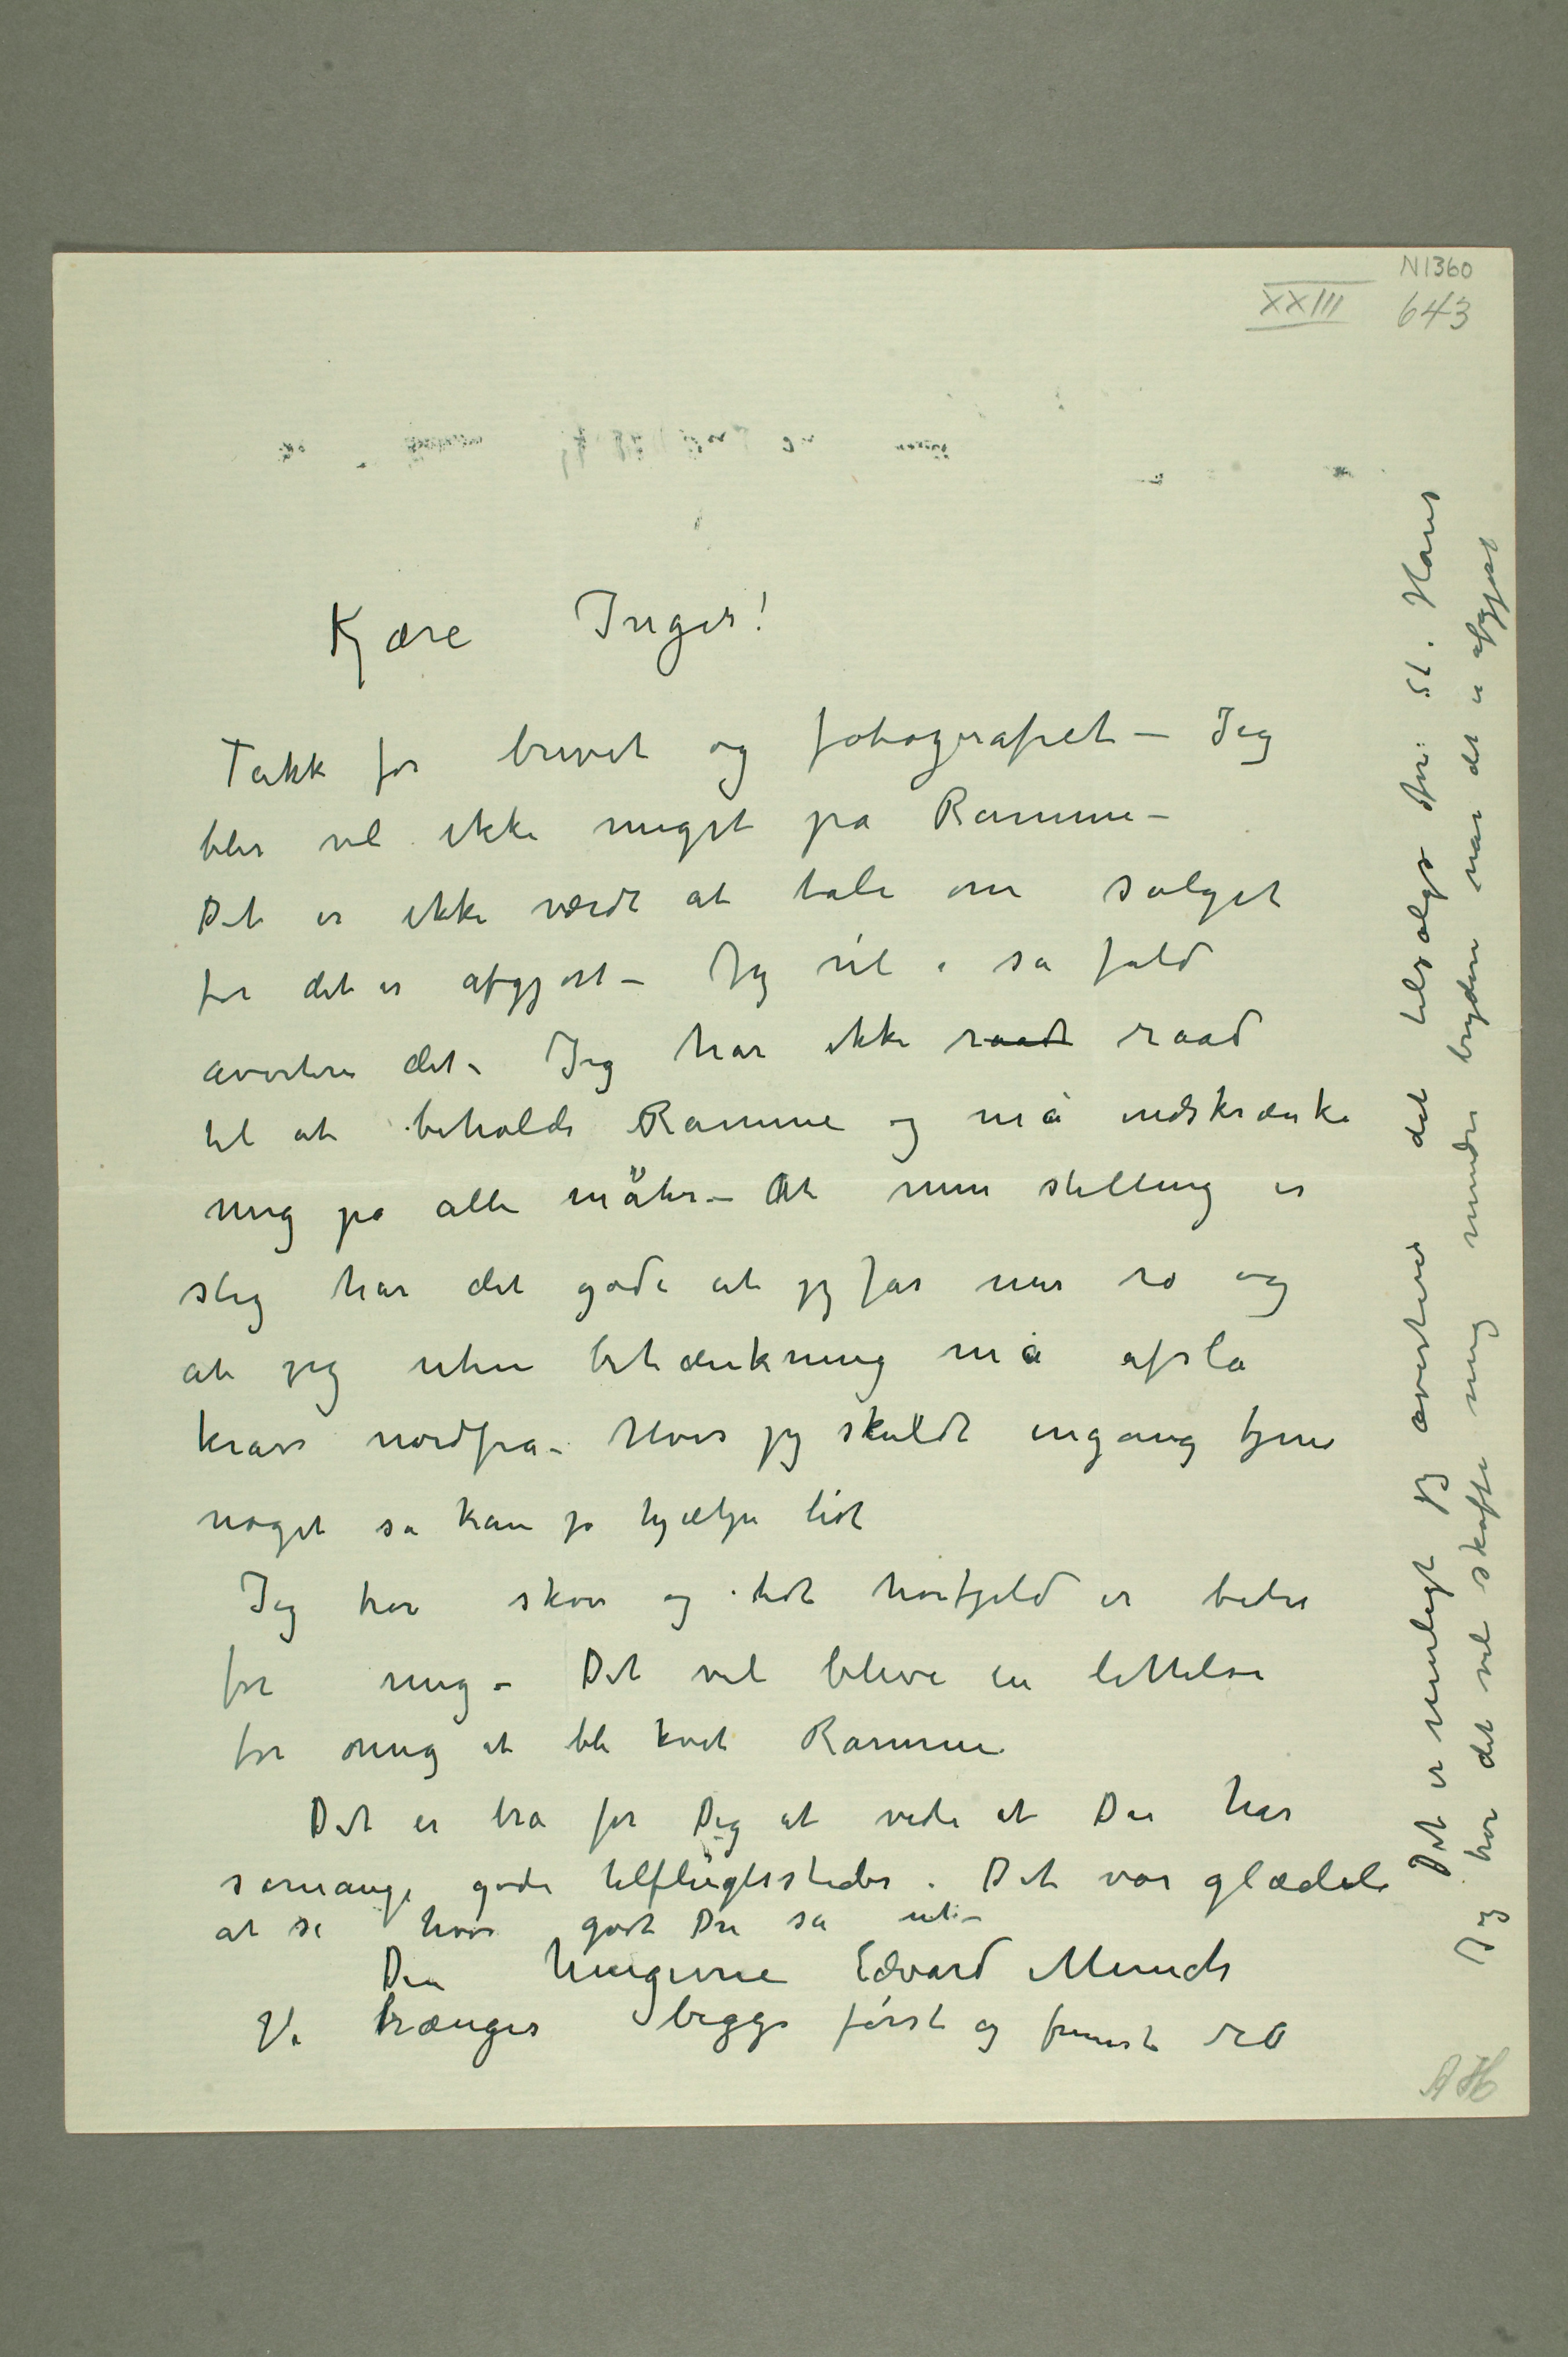 N1360
XXIII 643
Kjære Inger!
Takk for brevet og fotografiet – Jeg
blir vel ikke meget på Ramme –
Det er ikke værdt at tale om salget
før det er afgjort – Jeg vil i så fald
avertere det – Jeg har ikke raadt raad
til at beholde Ramme og må indskrænke
mig på alle måter – At min stilling er
slig har det gode at jeg får mer ro og
at jeg uten betænkning må afslå
krav nordfra – Hvis jeg skuldt engang tjene
noget så kan jo hjælpe lidt
Jeg tror skov og lidt høifjeld er bedre
for mig – Det vil blive en lettelse
for mig at bli kvit Ramme
Det er bra for Dig at vide at Du har
såmange gode tilflugtssteder. Det var glædeli
at se hvor godt Du så ut –
Din hengivne Edvard Munch
Vi trænger begge først og fremst ro
Det er muligt jeg averterer det tilsalgs før St. Hans
Jeg tror det vil skaffe mig mindre bryderi når det er afgjort
AH